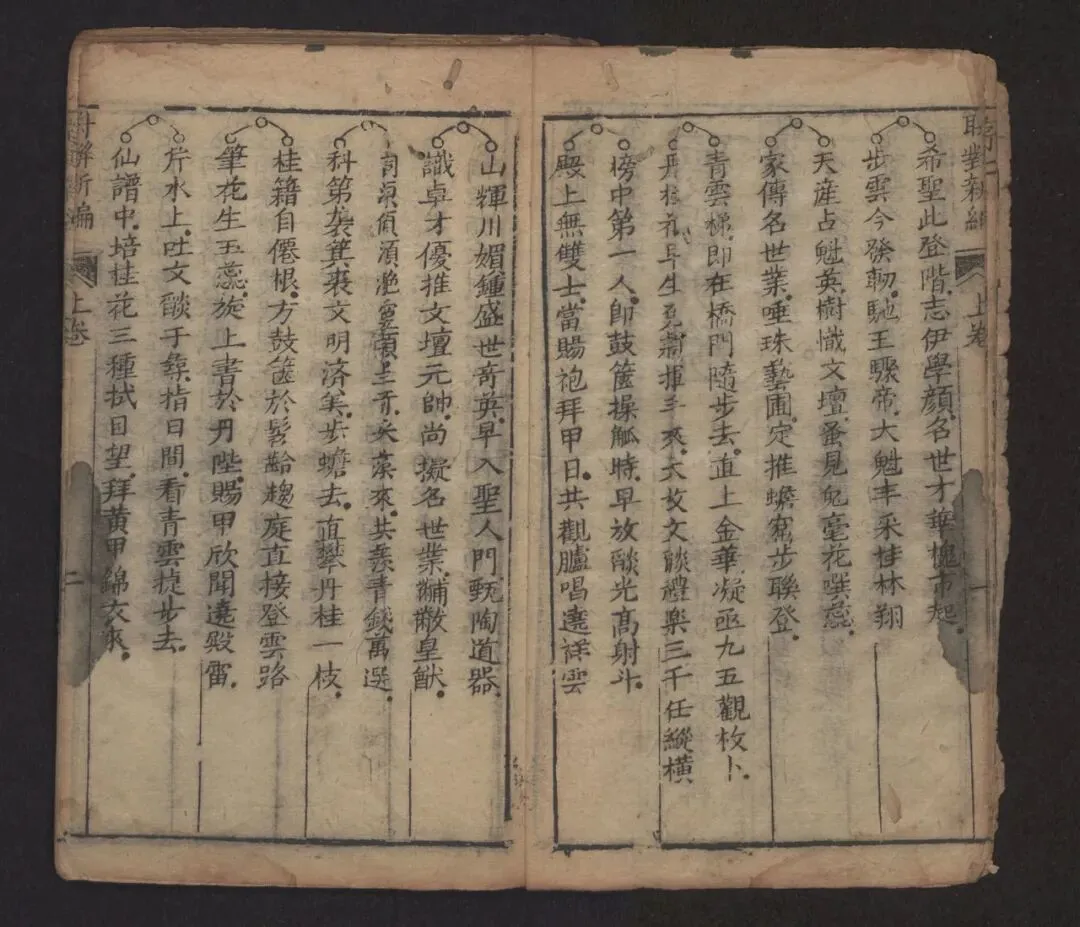 上卷
希聖此登階志伊學顏名世才華槐市起
步雲今發軔馳王驟帝大魁丰采桂林翔
天產占魁英樹幟文壇蚤見兔毫花噀蕊
家傳名世業唾珠藝圃定推蟾窟步聯登
青雲梯即在橋門隨步去直上金華凝亟九五觀枚卜
生 揮手來大放文燄禮樂三千任縱橫
榜中第一人即鼓篋操觚時早放燄光高射斗
殿上無雙士當賜袍拜甲日共觀臚唱遶祥雲
山輝川媚鍾盛世奇英早入聖人門甄陶道器
識卓才優推文壇元帥尚擬名世業黼黻皇猷
來共羨青錢萬選
科第袭箕裘文明済美步蟾去直攀丹桂一枝
桂籍自僊根方鼓篋於髫齡趨庭直接登雲路
筆花生玉蕊旋上書於丹陛賜甲欣聞遶殿雷
芹水上吐文燄于彝指日間看青雲捷步去
仙譜中培桂花三種拭目望拜黃甲錦衣來
上卷
二